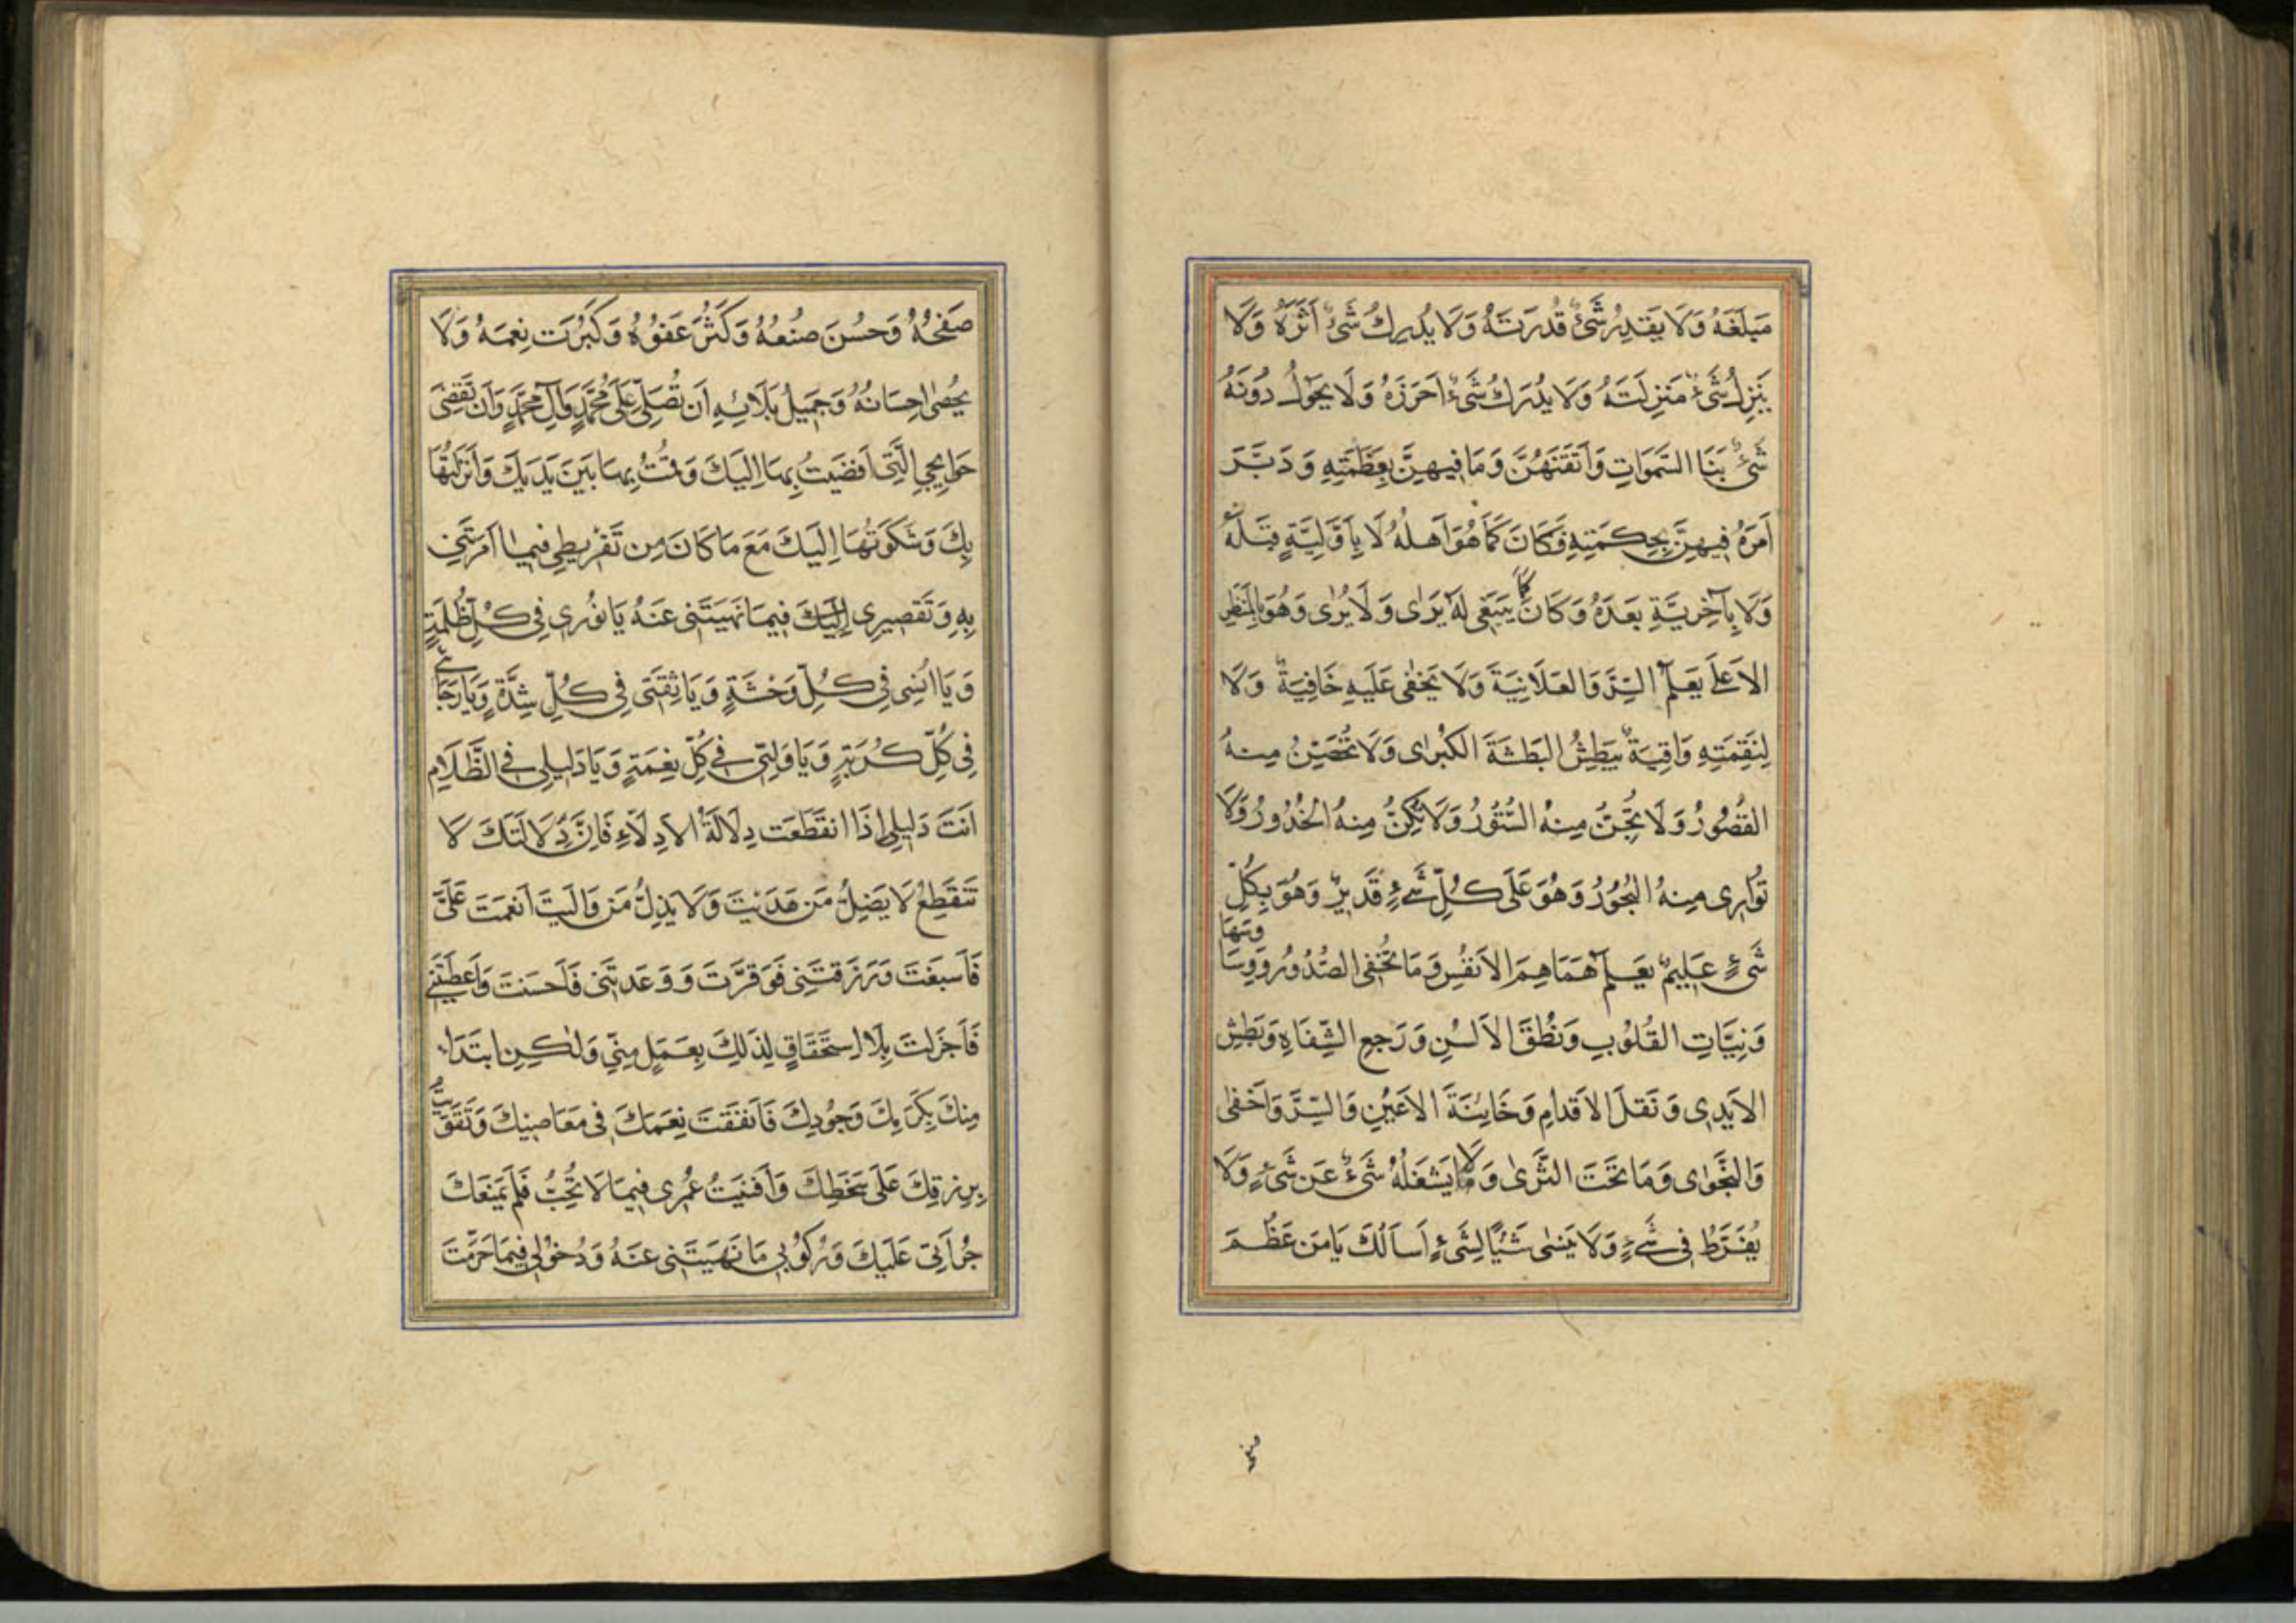 مَبْلَغَهُ وَلَا يَقْتَدِرُ شَيْءٌ قُدْرَتَهُ وَلَا يُدْرِكُ شَيْءٌ أَثَرَهُ وَلَا
يَنْزِلُ شَيْءٌ مَنْزِلَتَهُ وَلَا يُدْرَكُ شَيْءٌ أَحْرَزَهُ وَلَا يَحُولُ دُونَهُ
شَيْءٌ بَنَا السَّمٰوَاتِ وَأَتْقَنَهُنَّ وَمَا فِيهِنَّ بِعَظَمَتِهِ وَدَبَّرَ
أَمْرَهُ فِيهِنَّ بِحِكْمَتِهِ فَكَانَ كَمَا هُوَ أَهْلُهُ لَا بِأَوَّلِيَّةٍ قَبْلَهُ
وَلَا بِآخِرِيَّةٍ بَعْدَهُ وَكَانَ كَمَا يَنْبَغِي لَهُ يَرٰى وَلَا يُرٰى وَهُوَ بِالْمَنْظَرِ
الْأَعْلَى يَعْلَمُ السِّرَّ وَالْعَلَانِيَةَ وَلَا يَخْفٰى عَلَيْهِ خَافِيَةٌ وَلَا
لِنَقِمَتِهِ وَاقِيَةٌ يَبْطِشُ الْبَطْشَةَ الْكُبْرٰى وَلَا تُحَصِّنُ مِنْهُ
الْقُصُورُ وَلَا تُجِنُّ مِنْهُ السُّتُورُ وَلَا تُكِنُّ مِنْهُ الْخُدُورُ وَلَا
تُوَارِي مِنْهُ الْبُحُورُ وَهُوَ عَلَى كُلِّ شَيْءٍ قَدِيرٌ وَهُوَ بِكُلِّ
شَيْءٍ عَلِيمٌ يَعْلَمُ هَمَاهِمَ الْأَنْفُسِ وَمَا تُخْفِي الصُّدُورُ وَوَسَاوِسَهَا
وَنِيَّاتِ الْقُلُوبِ وَنُطْقَ الْأَلْسُنِ وَرَجْعَ الشِّفَاهِ وَبَطْشَ
الْأَيْدِي وَنَقْلَ الْأَقْدَامِ وَخَائِنَةَ الْأَعْيُنِ وَالسِّرَّ وَأَخْفٰى
وَالنَّجْوٰى وَمَا تَحْتَ الثَّرٰى وَلَا يَشْغَلُهُ شَيْءٌ عَنْ شَيْءٍ وَلَا
يُفَرِّطُ فِي شَيْءٍ وَلَا يَنْسٰى شَيْئًا لِشَيْءٍ أَسْأَلُكَ يَا مَنْ عَظُمَ
صَفْحُهُ وَحَسُنَ صُنْعُهُ وَكَثُرَ عَفْوُهُ وَكَبُرَتْ نِعَمُهُ وَلَا
يُحْصٰى إِحْسَانُهُ وَجَمِيلُ بَلَائِهِ أَنْ تُصَلِّيَ عَلَى مُحَمَّدٍ وَآلِ مُحَمَّدٍ وَأَنْ تَقْضِيَ
حَوَايِجِيَ الَّتِي أَفْضَيْتُ بِهَا إِلَيْكَ وَقُمْتُ بِهَا بَيْنَ يَدَيْكَ وَأَنْزَلْتُهَا
بِكَ وَشَكَوْتُهَا إِلَيْكَ مَعَ مَا كَانَ مِنْ تَفْرِيطِي فِيمَا أَمَرْتَنِي
بِهِ وَتَقْصِيرِي إِلَيْكَ فِيمَا نَهَيْتَنِي عَنْهُ يَا نُورِي فِي كُلِّ ظُلْمَةٍ
وَيَا أُنْسِي فِي كُلِّ وَحْشَةٍ وَيَا ثِقَتِي فِي كُلِّ شِدَّةٍ وَيَا رَجَائِي
فِي كُلِّ كُرْبَةٍ وَيَا وَلِيِّي فِي كُلِّ نِعْمَةٍ وَيَا دَلِيلِي فِي الظَّلَامِ
أَنْتَ دَلِيلِي إِذَا انْقَطَعَتْ دِلَالَةُ الْأَدِلَّاءِ فَإِنَّ دِلَالَتَكَ لَا
تَنْقَطِعُ لَا يَضِلُّ مَنْ هَدَيْتَ وَلَا يَذِلُّ مَنْ وَالَيْتَ أَنْعَمْتَ عَلَيَّ
فَأَسْبَغْتَ وَرَزَقْتَنِي فَوَفَّرْتَ وَوَعَدْتَنِي فَأَحْسَنْتَ وَأَعْطَيْتَنِي
فَأَجْزَلْتَ بِلَا اسْتِحْقَاقٍ لِذٰلِكَ بِعَمَلٍ مِنِّي وَلٰكِنِ ابْتِدَاءً
مِنْكَ بِكَرَمِكَ وَجُودِكَ فَأَنْفَقْتُ نِعَمَكَ فِي مَعَاصِيكَ وَتَقَوَّيْتُ
بِرِزْقِكَ عَلَى سَخَطِكَ وَأَفْنَيْتُ عُمْرِي فِيمَا لَا تُحِبُّ فَلَمْ يَمْنَعْكَ
جُرْأَتِي عَلَيْكَ وَرُكُوبِي مَا نَهَيْتَنِي عَنْهُ وَدُخُولِي فِيمَا حَرَّمْتَ